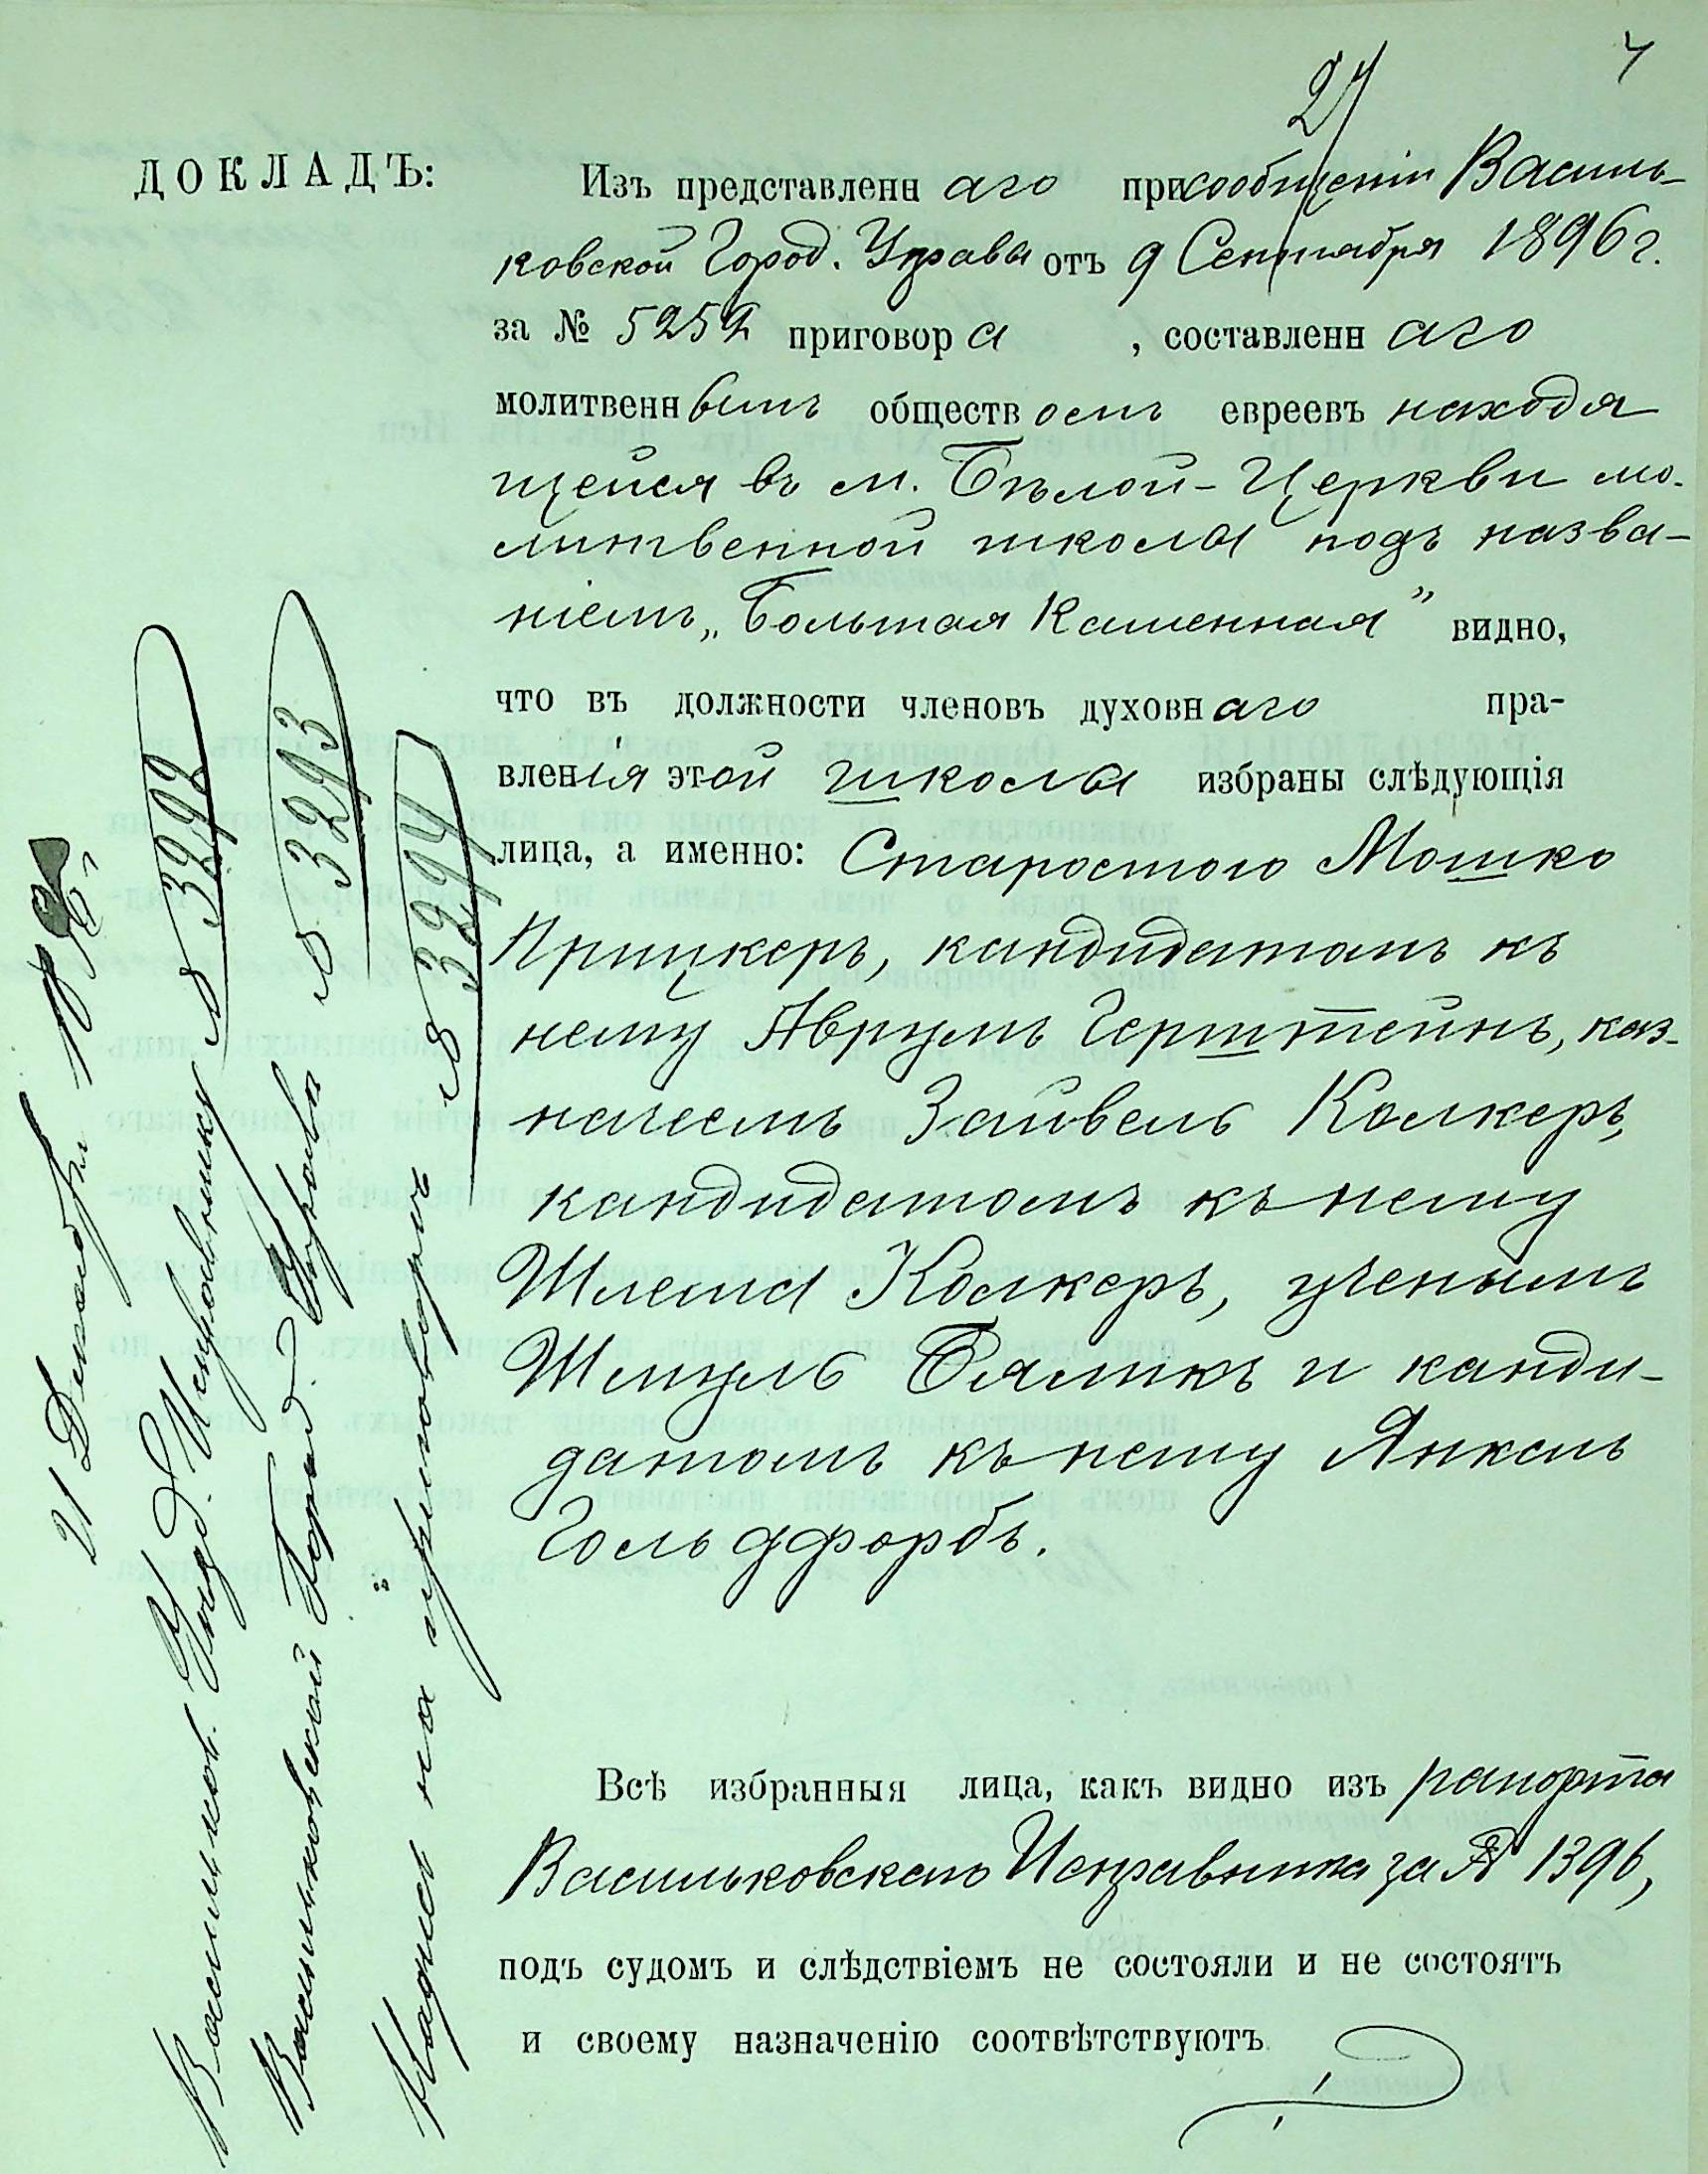 27
4
ДОКЛАДЪ:
Изъ представленнаго при сообщеніи Василь-
ковской Город. Управы отъ 9 Сентября 1896 г.
за № 5252 приговора, составленнаго
молитвеннымъ обществомъ евреевъ находя
щейся въ м. Бѣлой-Церкви мо-
литвенной школы подъ назва-
ніемъ „Большая Каменная" видно,
что въ должности членовъ духовнаго пра-
вленія этой школы избраны слѣдующія
лица, а именно: Старостою Мошко
Прицкеръ, кандидатомъ къ
нему Аврумъ Герштейнъ, каз-
начеемъ Зайвель Колкеръ,
кандидатомъ къ нему
Шлема Колкеръ, ученымъ
Шмуль Бяликъ и канди-
датомъ къ нему Янкель
Гольдфарбъ.
Всѣ избранныя лица, какъ видно изъ рапорта
Васильковскаго Исправника за № 1396,
подъ судомъ и слѣдствіемъ не состояли и не состоятъ
и своему назначенію соотвѣтствуютъ.
21 Декабря 96
Васильков. Уѣзд. Исправнику № 3292
Васильковской Город. Управѣ № 3293
Надпись на приговорѣ № 3294